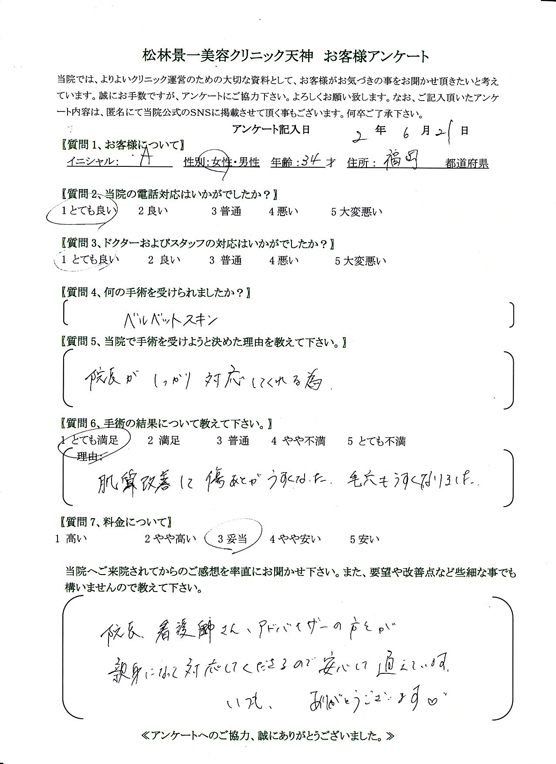 松林景一美容クリニック天神 お客様アンケート
当院では、よりよいクリニック運営のための大切な資料として、お客様がお気づきの事をお聞かせ頂きたいと考え
ています。誠にお手数ですが、アンケートにご協力下さい。よろしくお願い致します。なお、ご記入頂いたアンケ
ート内容は、匿名にて当院公式のSNSに掲載させて頂く事もございます。何卒ご了承下さい。
アンケート記入日 2 年 6 月 21日
〖質問1、お客様について〗
イニシャル: A 性別:女性・男性 年齢:34 才 住所: 福岡 都道府県
〖質問2、当院の電話対応はいかがでしたか?〗
1とても良い 2良い 3普通 4悪い 5大変悪い
〖質問3、ドクターおよびスタッフの対応はいかがでしたか?〗
1とても良い 2 良い 3 普通 4悪い 5大変悪い
〖質問4、何の手術を受けられましたか?〗
ベルベットスキン
〖質問5、当院で手術を受けようと決めた理由を教えて下さい。〗
院長がしっかり対応してくれる為
〖質問6、手術の結果について教えて下さい。〗
1とても満足 2 満足 3 普通 4 やや不満 5 とても不満
理由:
肌質改善して傷あとがうすくなった。毛穴もうすくなりました。
〖質問7、料金について〗
1 高い 2やや高い 3妥当 4やや安い 5安い
当院へご来院されてからのご感想を率直にお聞かせ下さい。また、要望や改善点など些細な事でも
構いませんので教えて下さい。
院長、看護師さん、アドバイザーの方々が
親身になって対応してくださるので安心して通えています。
いつも、ありがとうございます♡
≪アンケートへのご協力、誠にありがとうございました。≫